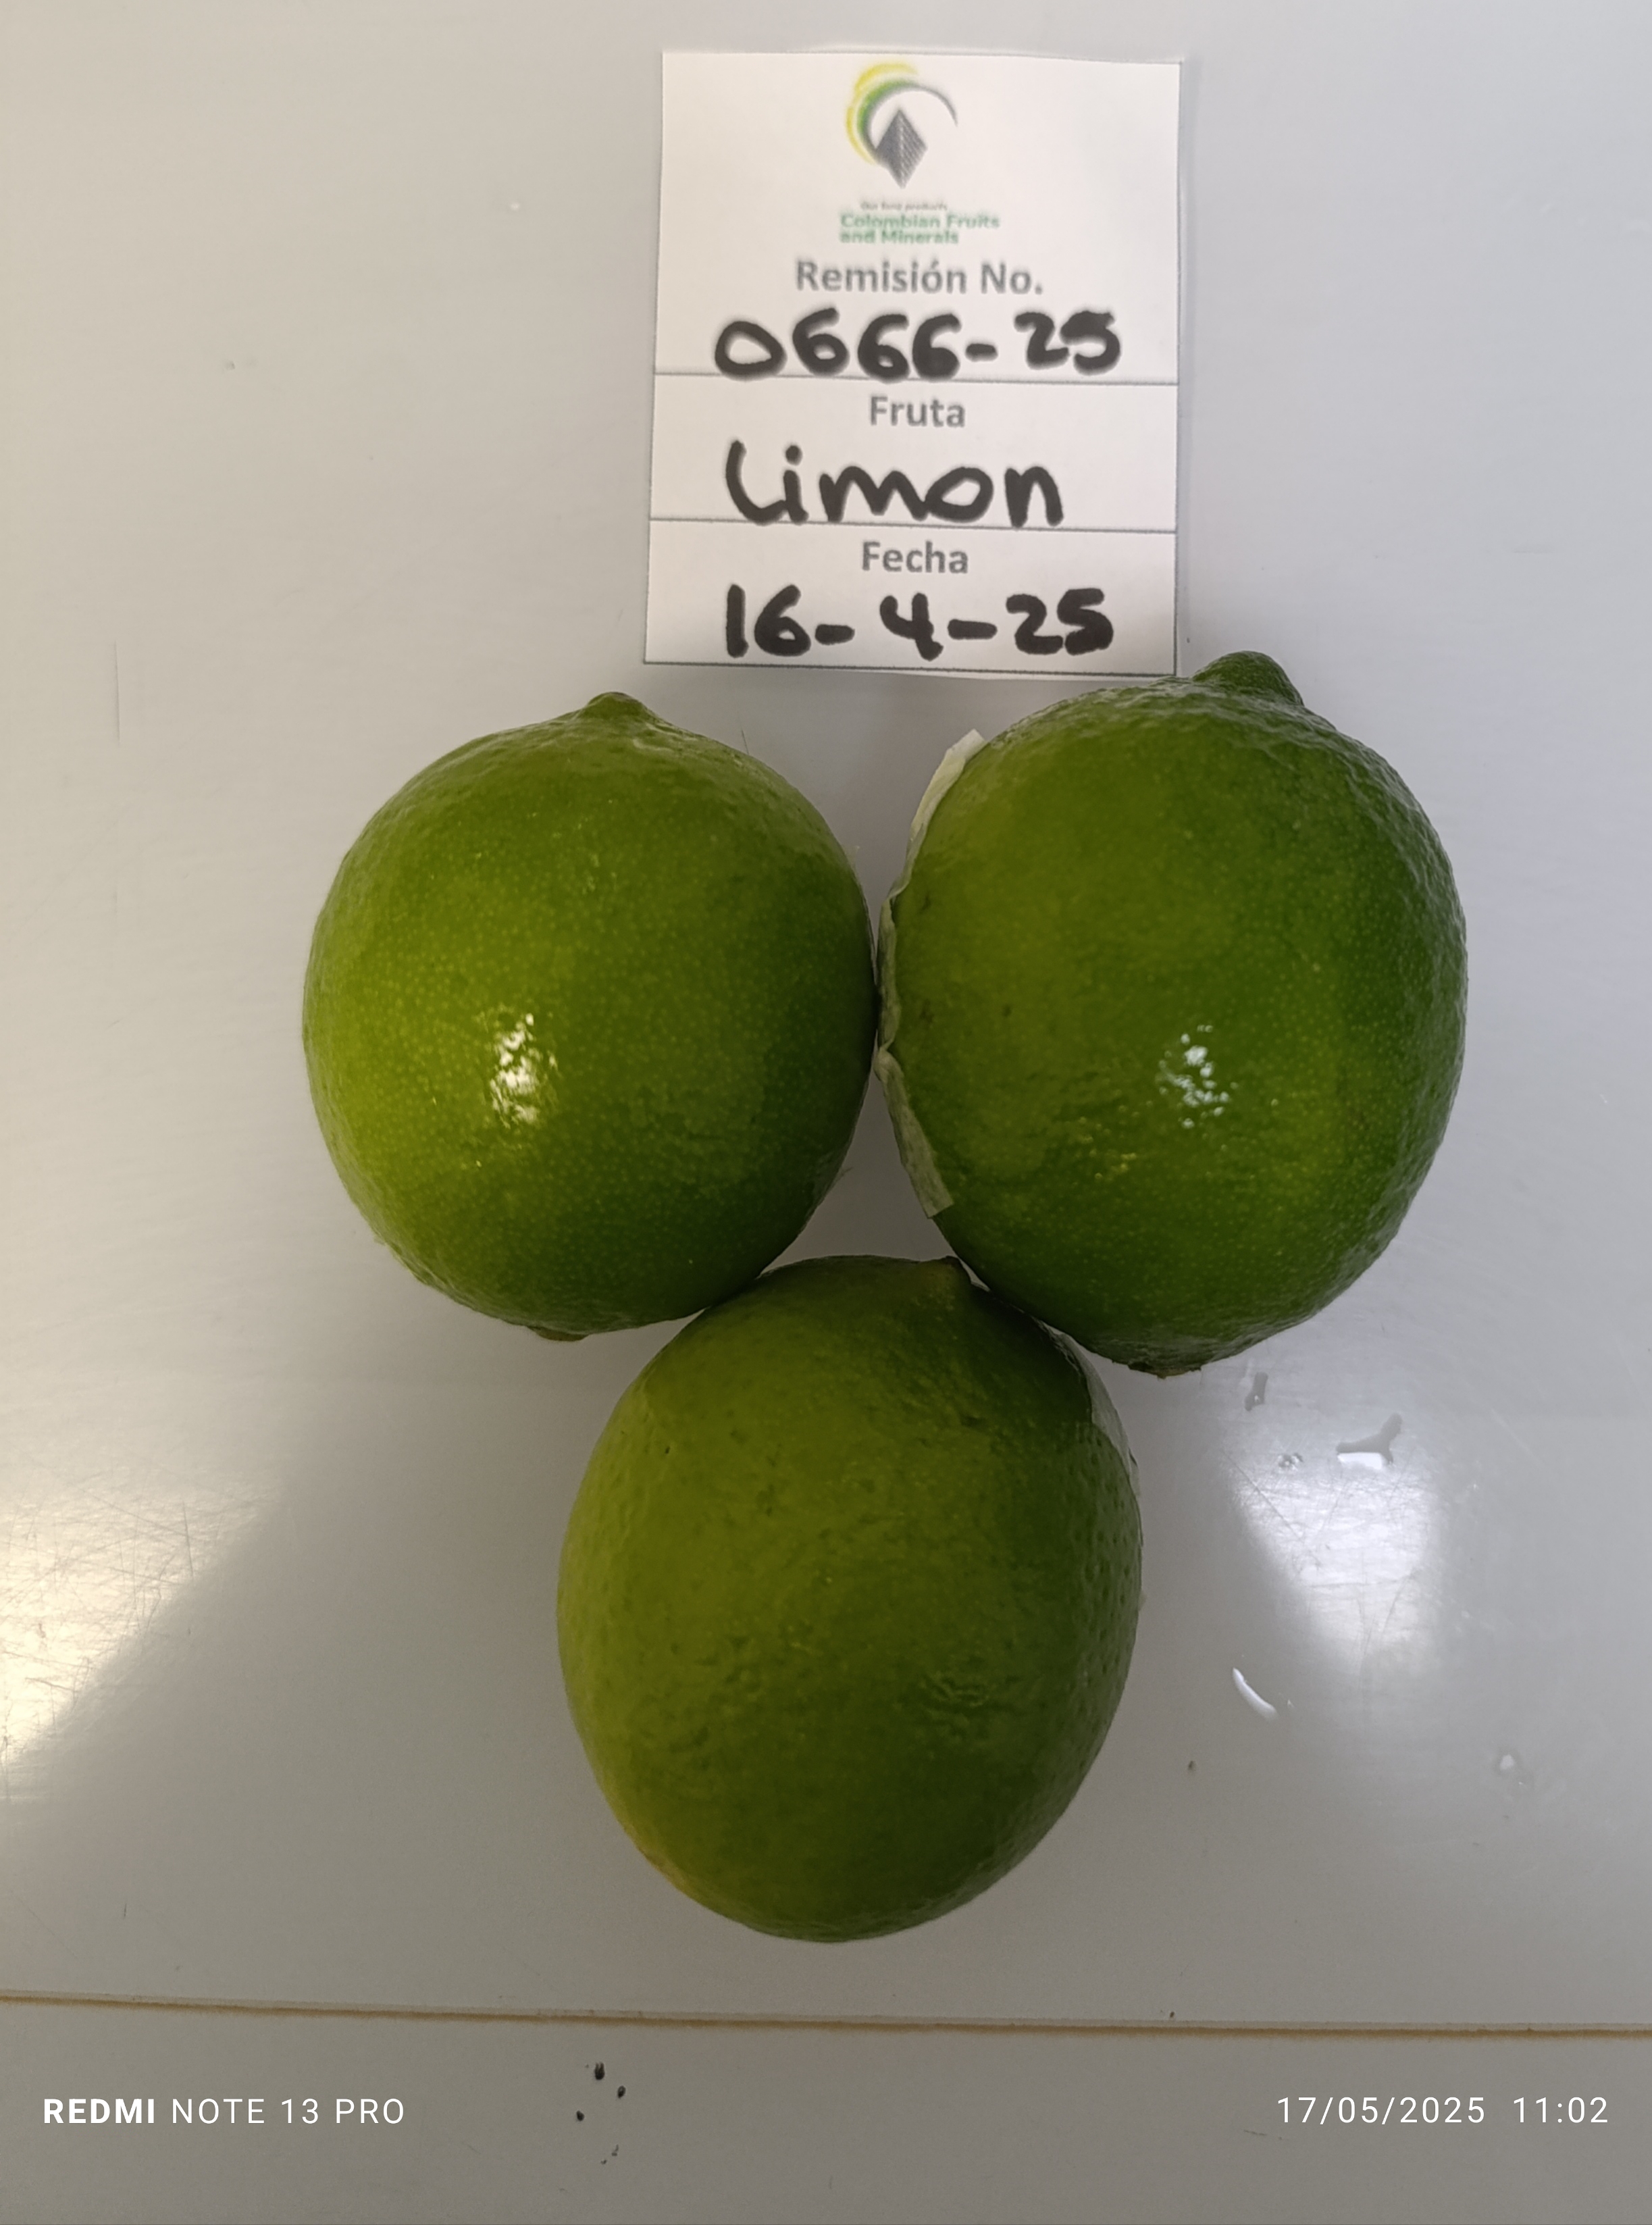 Our best products
Colombian Fruits
and Minerals
Remisión No.
0666-25
Fruta
Limon
Fecha
16-4-25
REDMI NOTE 13 PRO
17/05/2025 11:02